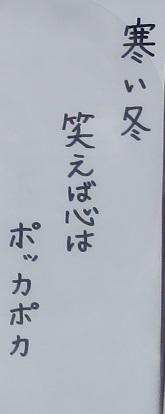 寒い冬
笑えば心は
ポッカポカ